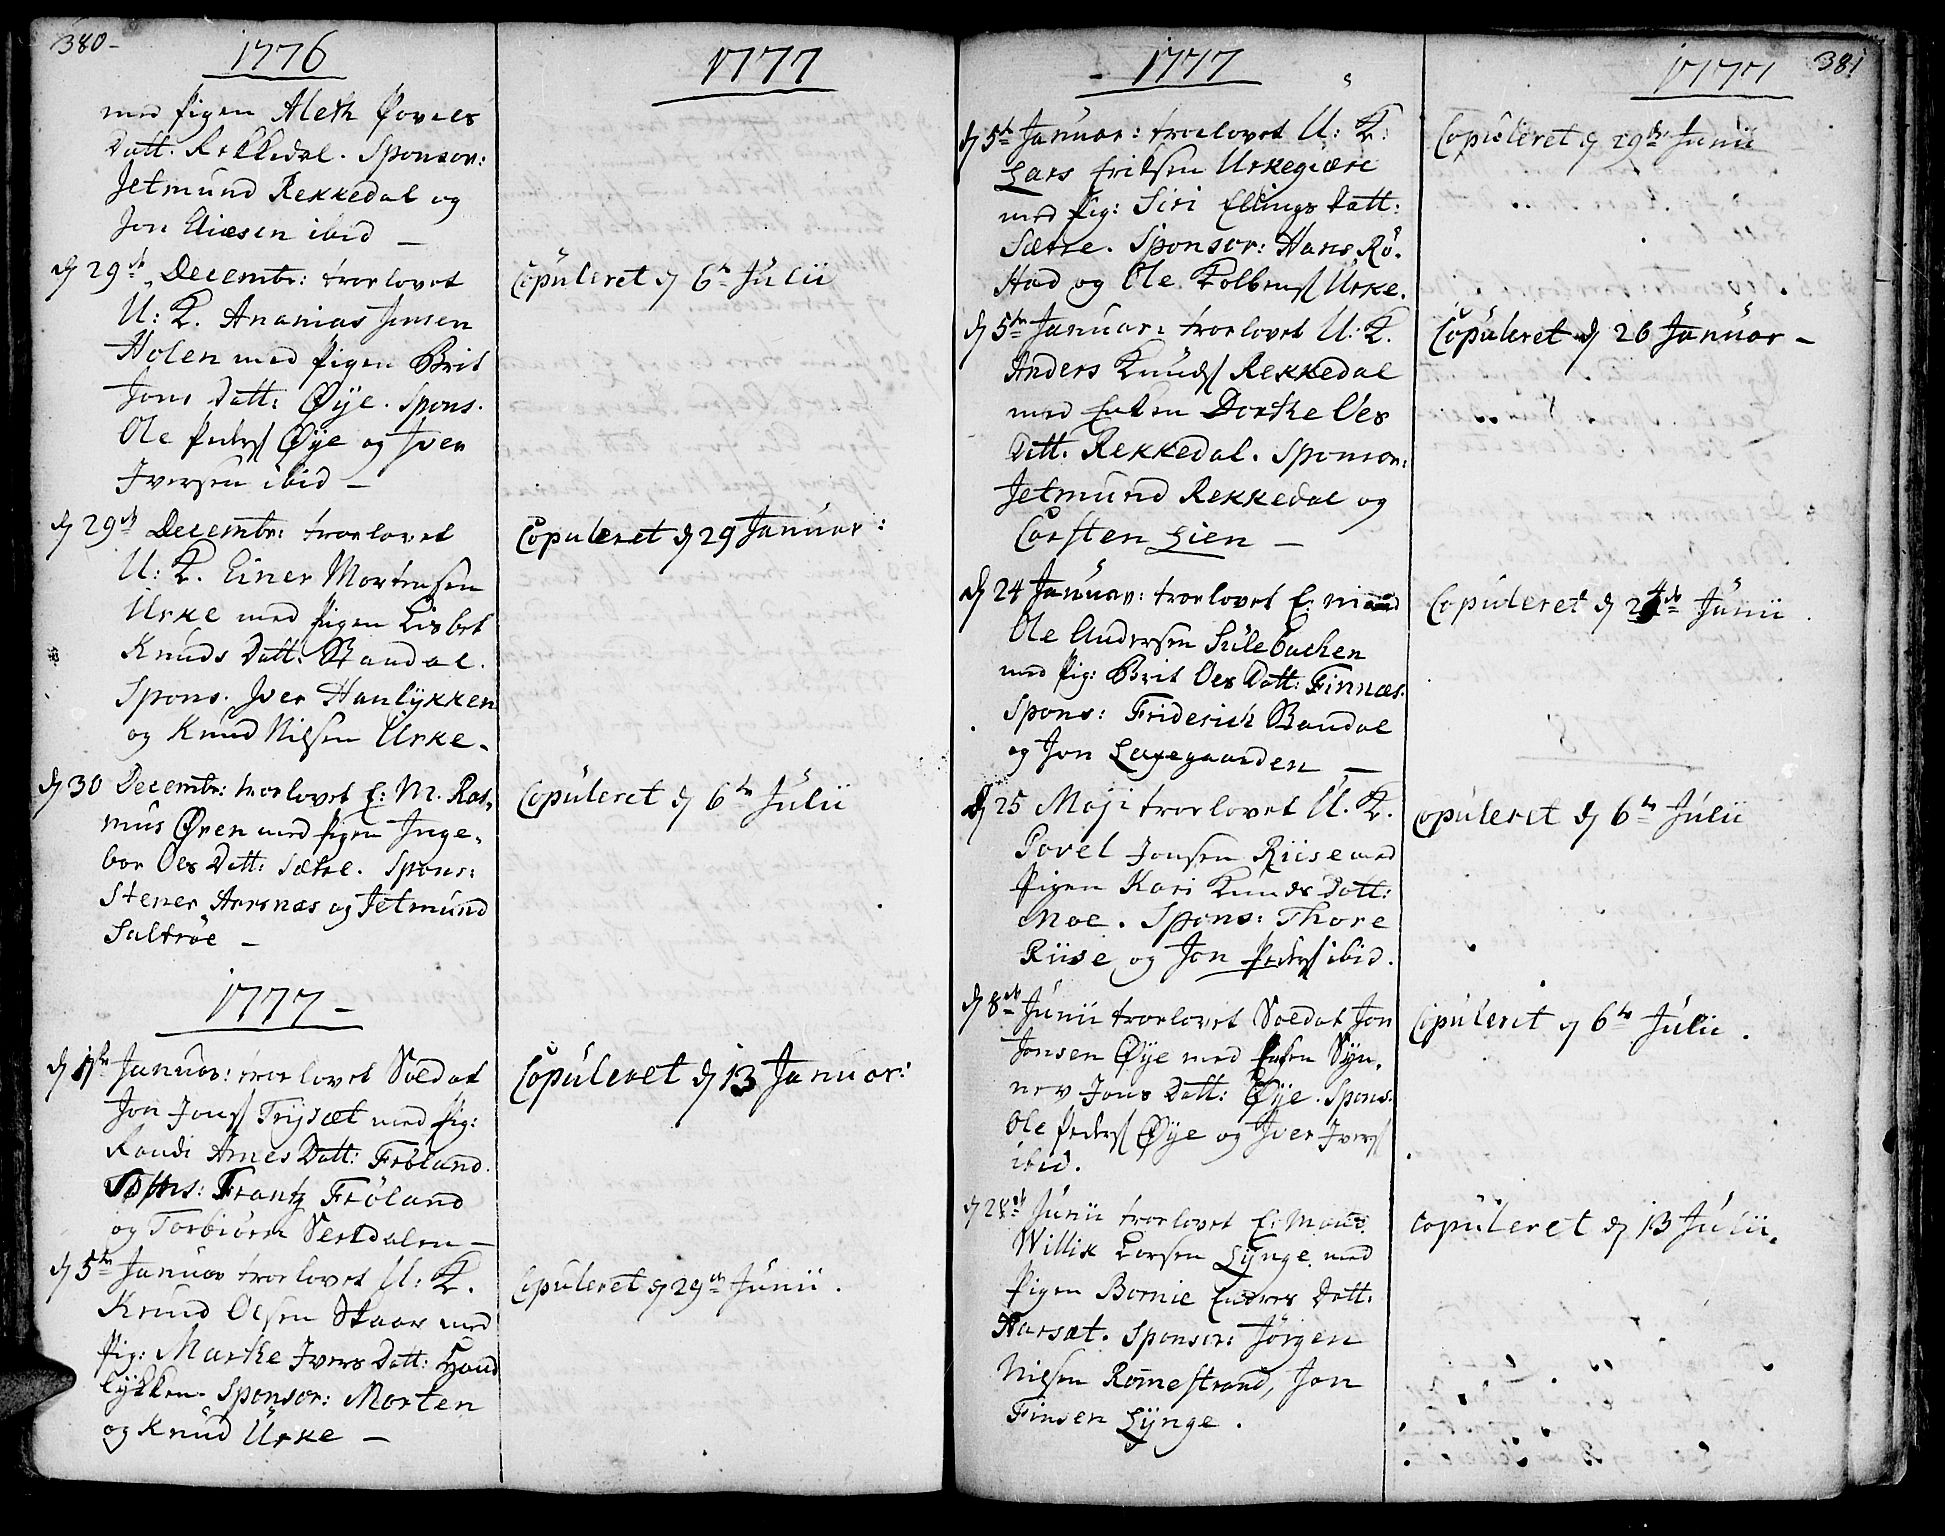 380-
1776
med Pigen Aleth Povels
Datt: Rekkedal. Sponsor:
Jetmund Rekkedal og
Jon Eliæsen ibid —
d 29de Decembr: trorlovet
U: K. Ananias Jensen
Holen med Pigen Brit
Jons Datt: Øÿe. Spons.
Ole Peders Øÿe og Iver
Iversen ibid —
d 29de Decembr: trorlovet
U: K. Einer Mortensen
Urke med Pigen Lisbet
Knuds Datt: Standal.
Spons. Iver Haulÿkken
og Knud Nilsen Urke.
d 30 Decembr: trorlovet E: M. Ras-
mus Øren med Pigen Inge-
bor Oes Datt: Sætre. Spons:
Stener Aarsnæs og Jetmund
Saltrøe —
1777 —
d 1ste Januar: trorlovet Soldat
Jon Jons Trÿsæt med Pig:
Randi Arnes Datt: Frøland.
Spons: Frantz Frøland
og Torbiørn Velsdalen —
d 5te Januar trorlovet U: K.
Knud Olsen Skaar med
Pig: Marthe Ivers Datt: Haud
lÿkken. Sponsor: Morten
og Knud Urke —
1777
Copuleret d 6te Julii
Copuleret d 29 Januar:
Copuleret d 6te Julii
Copuleret d 13 Januar:
Copuleret d 29de Junii.
1777
d 5te Januar: troelovet U: K:
Lars Eriksen Urkegiære
med Pig: Siri Ellings Datt:
Sætre. Sponsor: Hans Rö-
stad og Ole Kolbens Urke.
d 5te Januar: trorlovet U: K.
Anders Knuds Rekkedal
med Enken Dorthe Oes
Datt. Rekkedal. Sponsor:
Jetmund Rekkedal og
Carsten Lien —
d 24 Januar: trorlovet E: mand
Ole Andersen Sulebachen
med Pig: Brit Oes Datt: Finnæs.
Spons: Friderich Standal
og Jon Legegaarden —
d 25 Maji trorlovet U. K.
Povel Jonsen Riise med
Pigen Kari Knuds Datt:
Moe. Spons: Thore
Riise og Jon Peders ibid.
d 8de Junii trorlovet Soldat Jon
Jonsen Øÿe med Enken Sÿn-
nev Jons Datt: Øÿe. Spons.
Ole Peders Øÿe og Iver Ivers
ibid.
d 28de Junii trorlovet E: Mand.
Willik Larsen Lÿnge med
Pigen Bornie Endres Datt:
Harsæt. Sponsor: Jörgen
Nilsen Romestrand, Jon
Finsen Lÿnge.
1777
381
Copuleret d 29de Junii
Copuleret d 26 Januar —
Copuleret d 24de Junii
Copuleret d 6te Julii
Copuleret d 6te Julii.
Copuleret d 13 Julii.